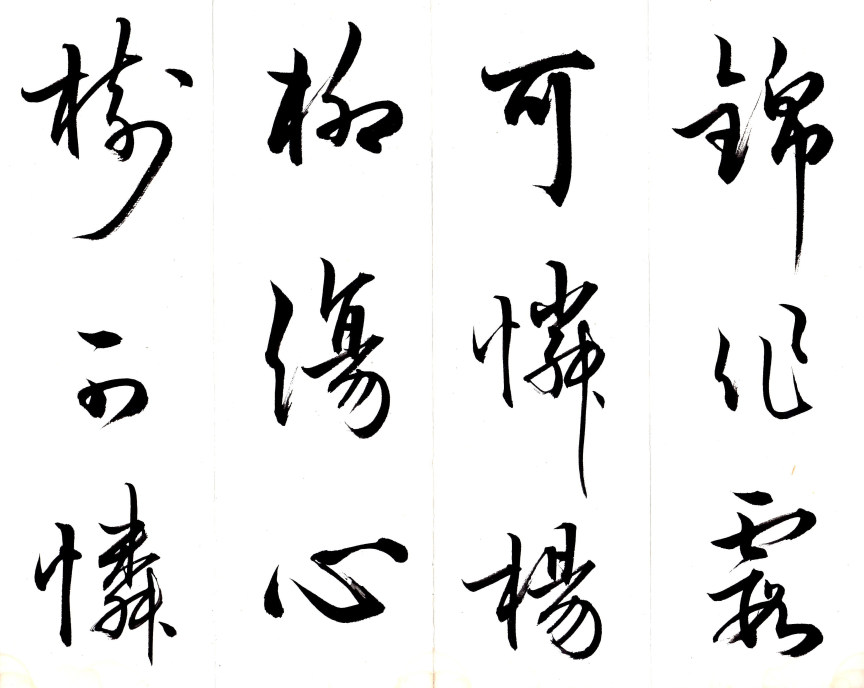 錦作霞
可憐楊
柳傷心
樹可憐